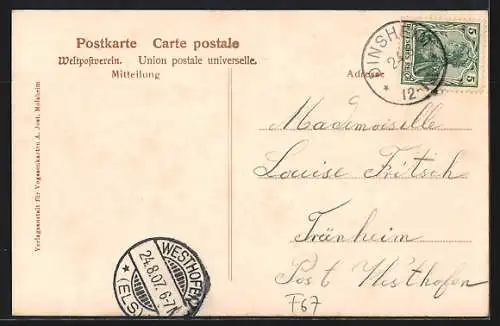 Postkarte Carte postale
Weltpostverein. Union postale universelle.
Mitteilung
Adresse
Verlagsanstalt für Vogesenkarten A. Jost, Molsheim
5
5
DEUTSCHES REICH
DINSH
24
12-1
Mademoiselle
Louise Fritsch
Tränheim
Post Westhofen
F67
WESTHOFEN
24.8.07. 6-7N
* (ELS)